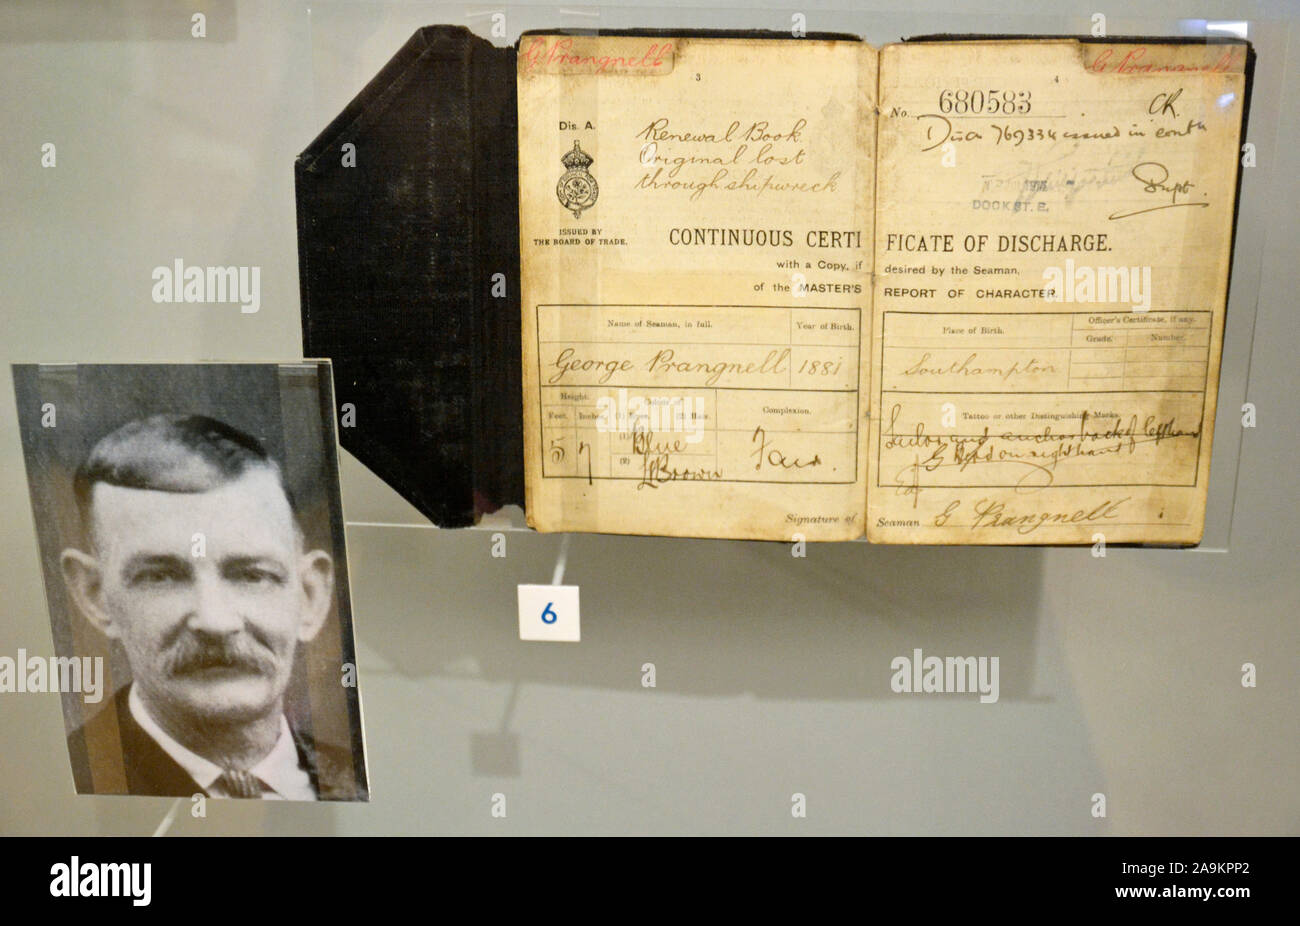 G Prangnell
3
Dis. A.
Renewal Book
Original lost
through shipwreck
ISSUED BY
THE BOARD OF TRADE.
CONTINUOUS CERTI
with a Copy, if
of the MASTER'S
Name of Seaman, in full.
Year of Birth.
George Prangnell
1881
Height.
Feet.
Inches.
(1) Eyes.
(2) Hair.
Complexion.
5
7
(1)
Blue
(2)
Brown
Fair
Signature of
G Prangnell
4
No. 680583
CR.
Disa 769334 issued in
Supt.
DOCK ST. E.
FICATE OF DISCHARGE.
desired by the Seaman,
REPORT OF CHARACTER.
Place of Birth.
Officer's Certificate, if any.
Grade.
Number.
Southampton
Tattoo or other Distinguishing Marks.
Sailor and anchor back of left hand
G on right hand
Seaman G Prangnell
6
alamy
alamy
Image ID: 2A9KPP2
www.alamy.com